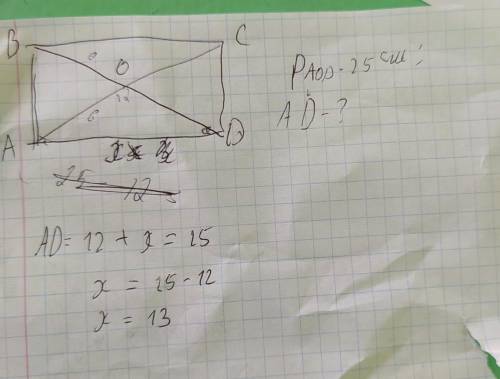 B C
O
12
6
A D
P AOD - 25 см;
AD - ?
25 - 12
AD = 12 + x = 25
x = 25 - 12
x = 13